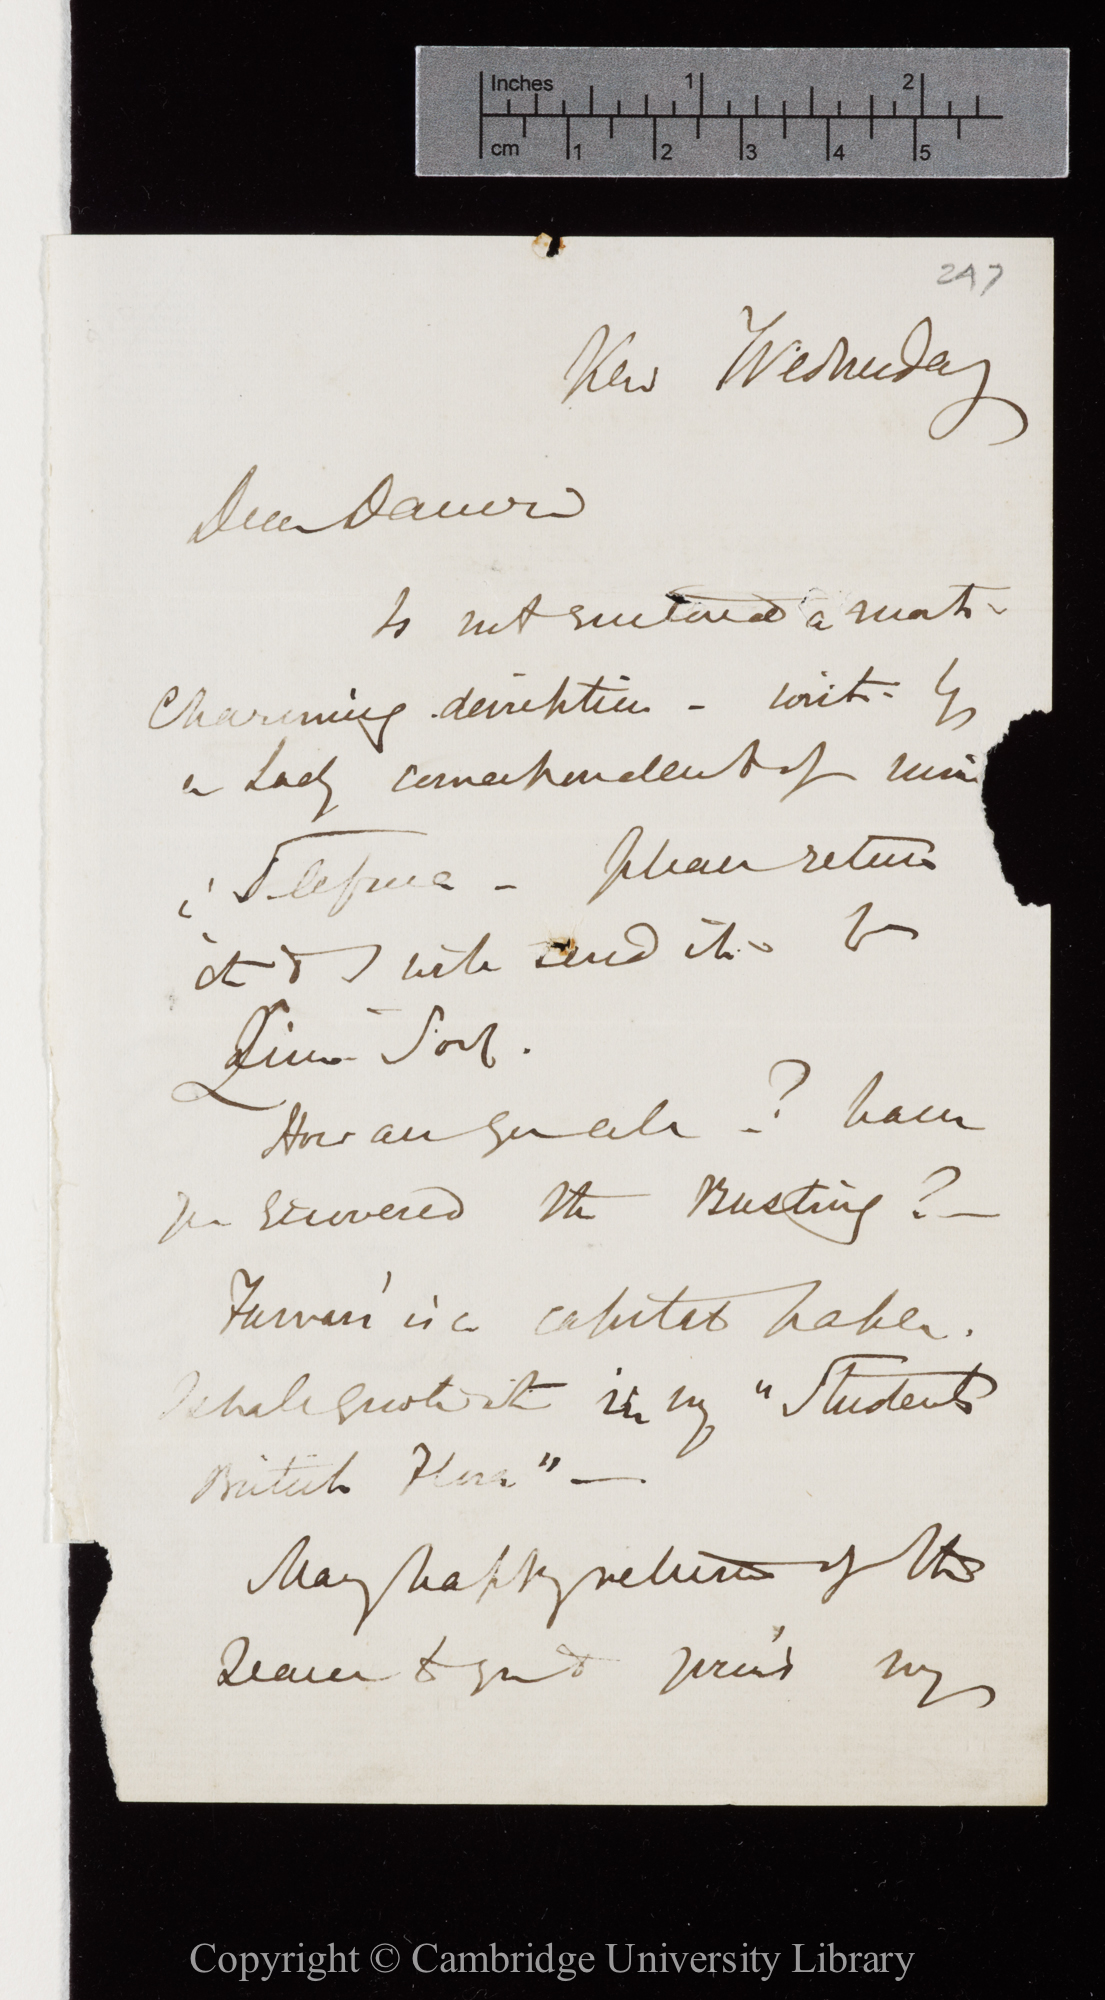 Inches 1 2
cm 1 2 3 4 5
247
Kew Wednesday
Dear Darwin
Is not enclosed a most
charming description – writ. by
a Lady correspondent of mine
please return
it & I will send it to
Linn. Soc.
How are you all –? have
you recovered the Busting? –
Farrer's is a capital paper.
I shall quote it in my "Students
British Flora" —
Many happy returns of the
Season to you & yours my
Copyright © Cambridge University Library